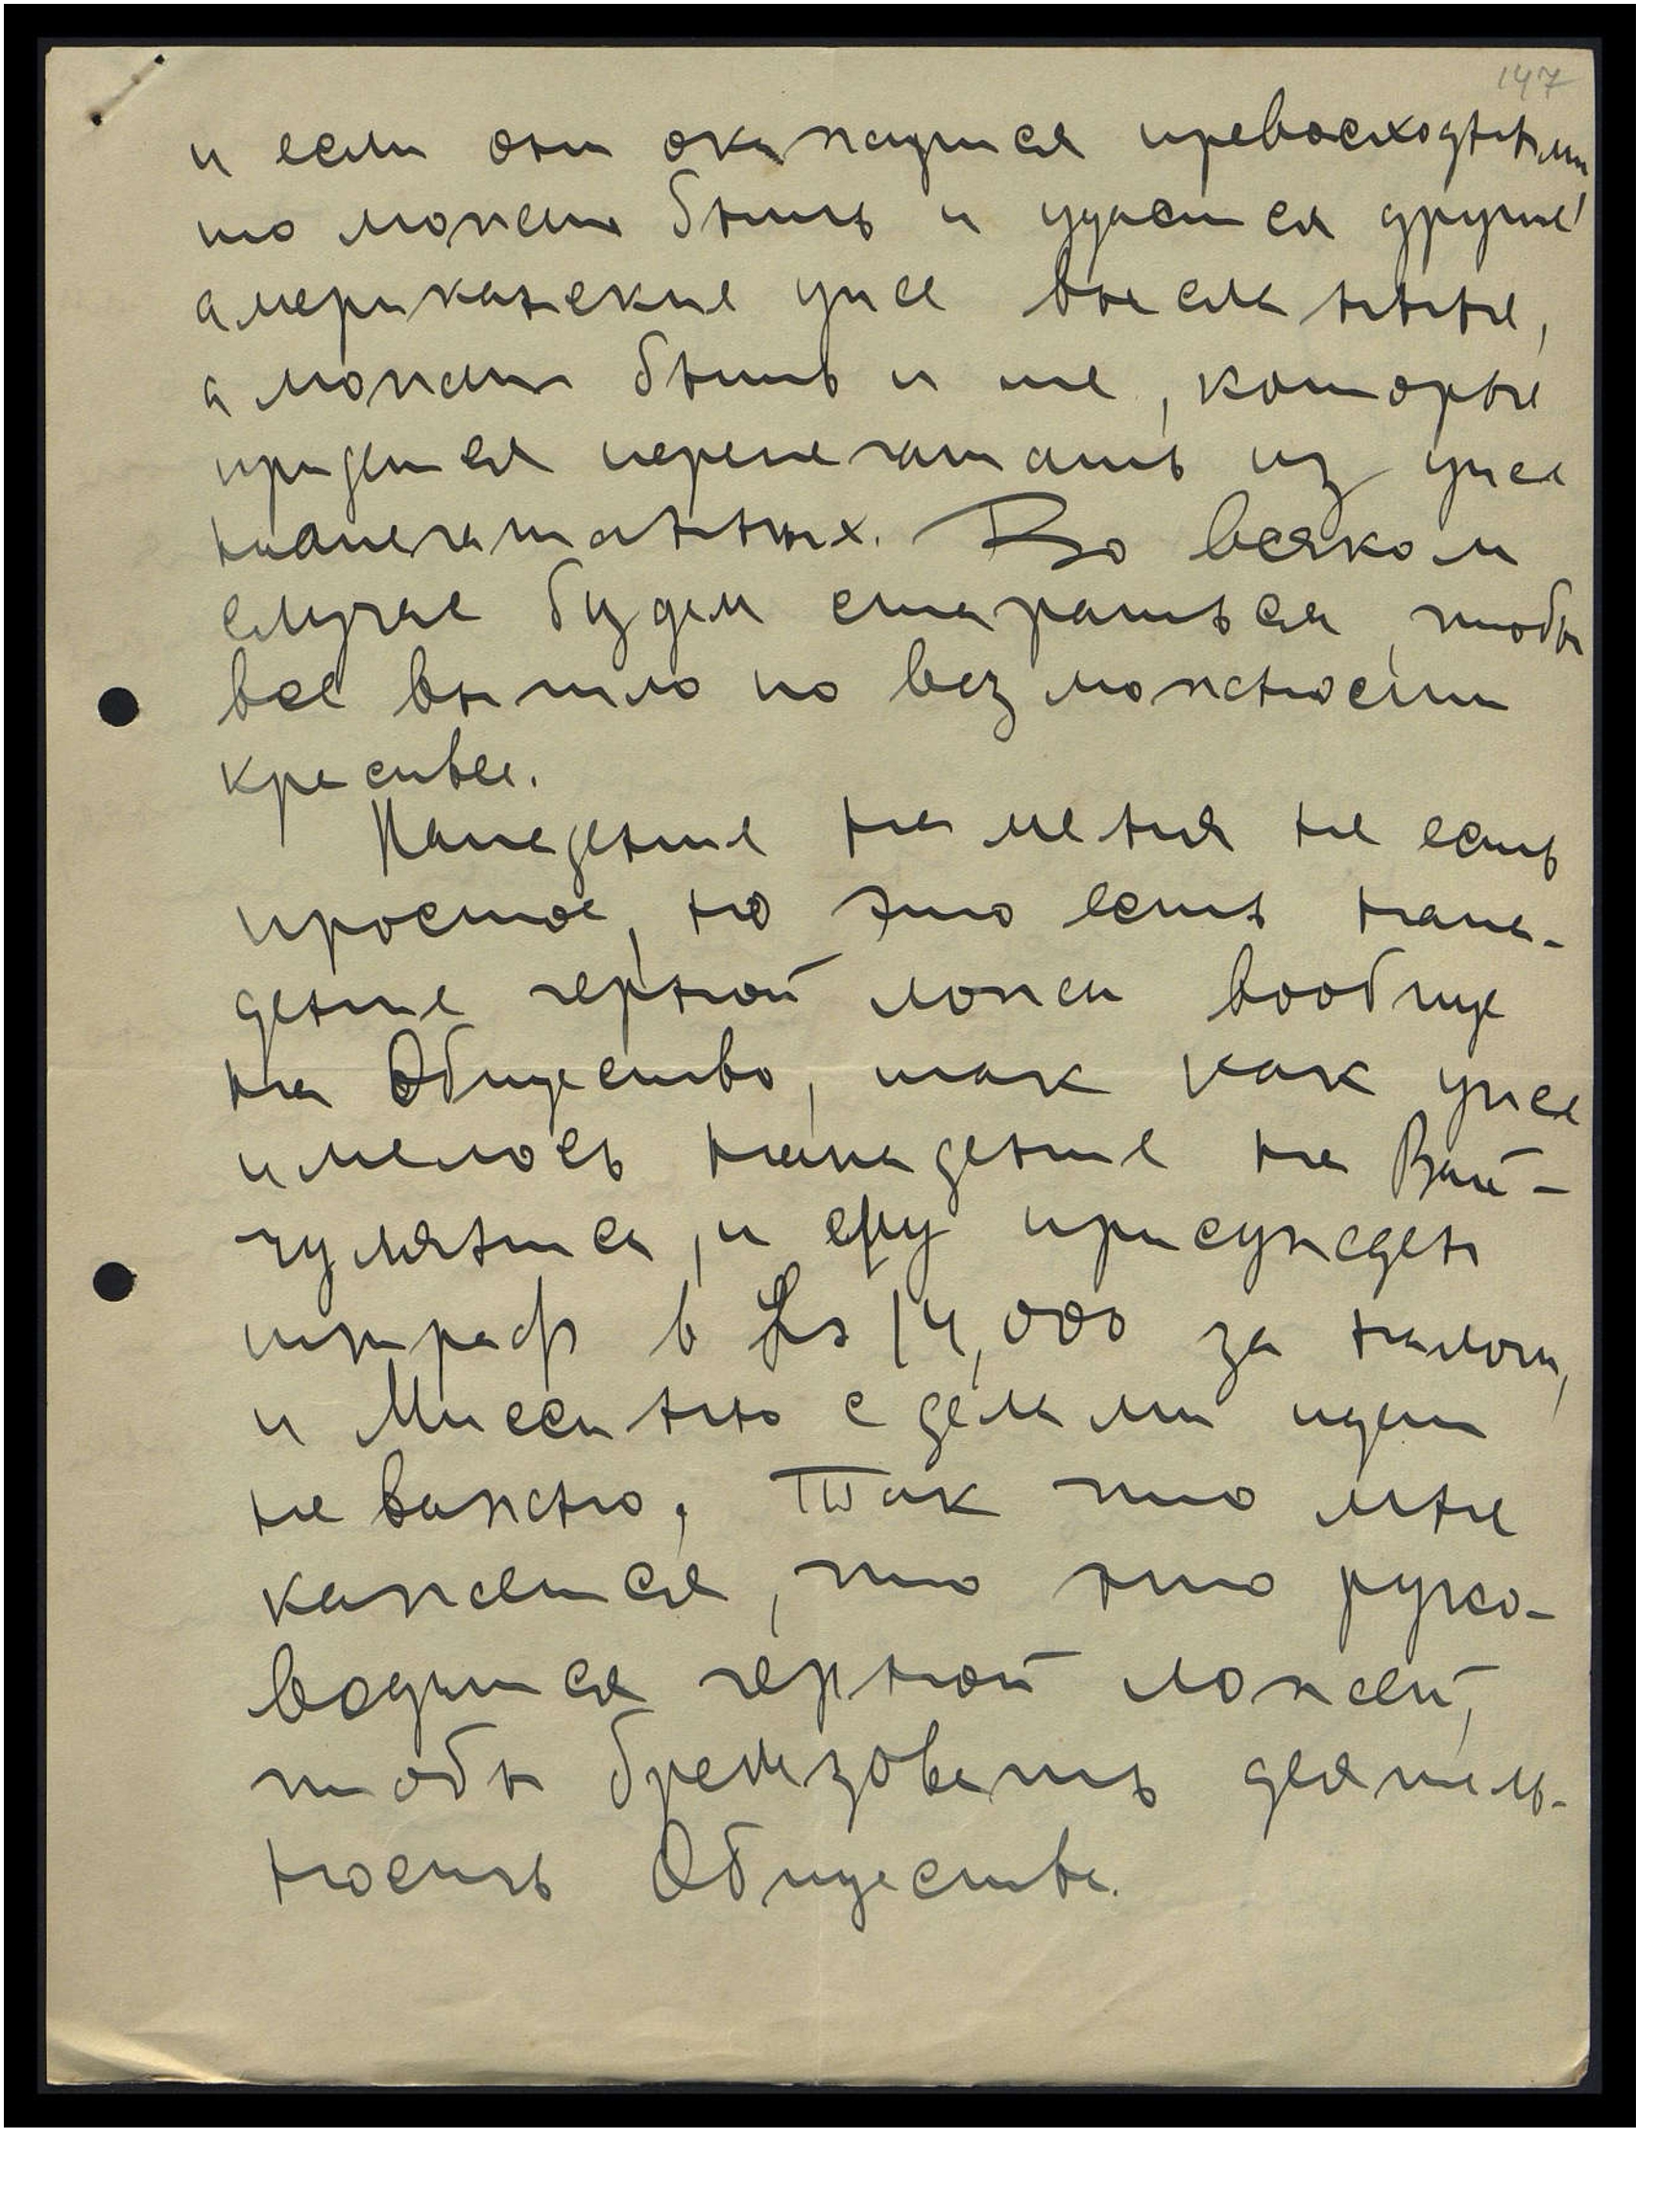 147
и если они окажутся превосходными
то может быть и удастся другие
американские уже высланные,
а может быть и те, которые
придется перепечатать из уже
напечатанных. Во всяком
случае будем стараться, чтобы
все вышло по возможности
красивее.
Нападение на меня не есть
простое, но это есть напа-
дение черной ложи вообще
на Общество, так как уже
имелось нападение на Вай-
чуляниса, и ему присужден
штраф в Ls 14,000 за налоги,
и Миссиню с делами идет
неважно. Так что мне
кажется, что это руко-
водится черной ложей,
чтобы бремзовать деятель-
ность Общества.